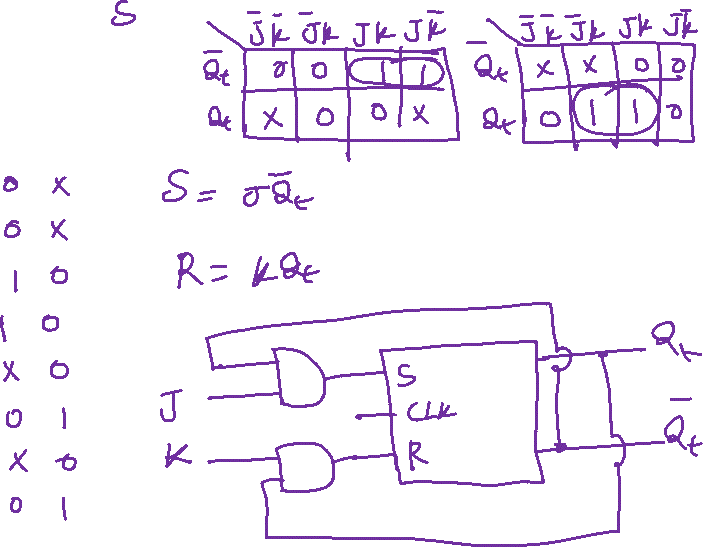 S
J̅K̅ J̅K JK JK̅
Q̅t 0 0 1 1
Qt X 0 0 X
J̅K̅ J̅K JK JK̅
Q̅t X X 0 0
Qt 0 1 1 0
0 X
0 X
1 0
1 0
X 0
0 1
X 0
0 1
S = JQ̅t
R = KQt
J
K
S
CLK
R
Qt
Q̅t